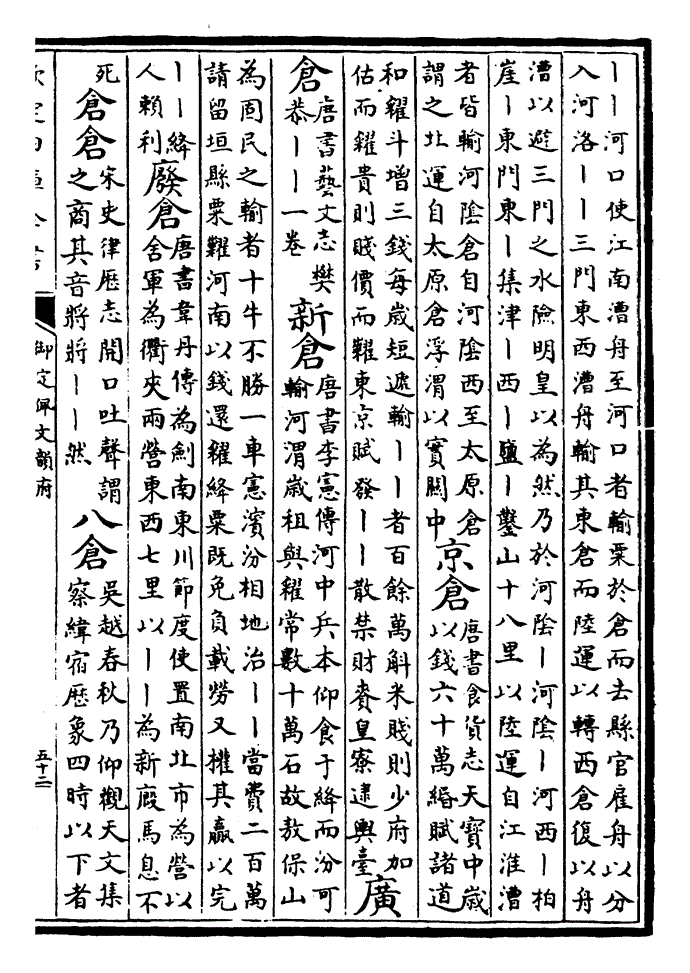 丨丨河口使江南漕舟至河口者輸粟於倉而去縣官雇舟以分
入河洛丨丨三門東西漕舟輸其東倉而陸運以轉西倉復以舟
漕以避三門之水險明皇以為然乃於河陰丨河陰丨河西丨柏
崖丨東門東丨集津丨西丨鹽丨鑿山十八里以陸運自江淮漕
者皆輸河陰倉自河陰西至太原倉
謂之北運自太原倉浮渭以實關中
京倉
唐書食貨志天寶中歲
以錢六十萬緡賦諸道
和糴斗增三錢每歲短遞輸丨丨者百餘萬斛米賤則少府加
估而糴貴則賤價而糶東京賦發丨丨散禁財賚皇寮逮輿臺
廣
倉
唐書藝文志樊
恭丨丨一卷
新倉
唐書李憲傳河中兵本仰食于絳而汾可
輸河渭歲租與糴常數十萬石故敖保山
為固民之輸者十牛不勝一車憲濱汾相地治丨丨當費二百萬
請留垣縣粟糶河南以錢還糴絳粟既免負載勞又權其贏以完
丨丨絳
人賴利
廢倉
唐書韋丹傳為劍南東川節度使置南北市為營以
舍軍為衢夾兩營東西七里以丨丨為新廄馬息不
死
倉倉
宋史律歷志開口吐聲謂
之商其音將將丨丨然
八倉
吳越春秋乃仰觀天文集
察緯宿歷象四時以下者
欽定四庫全書
御定佩文韻府
五十二